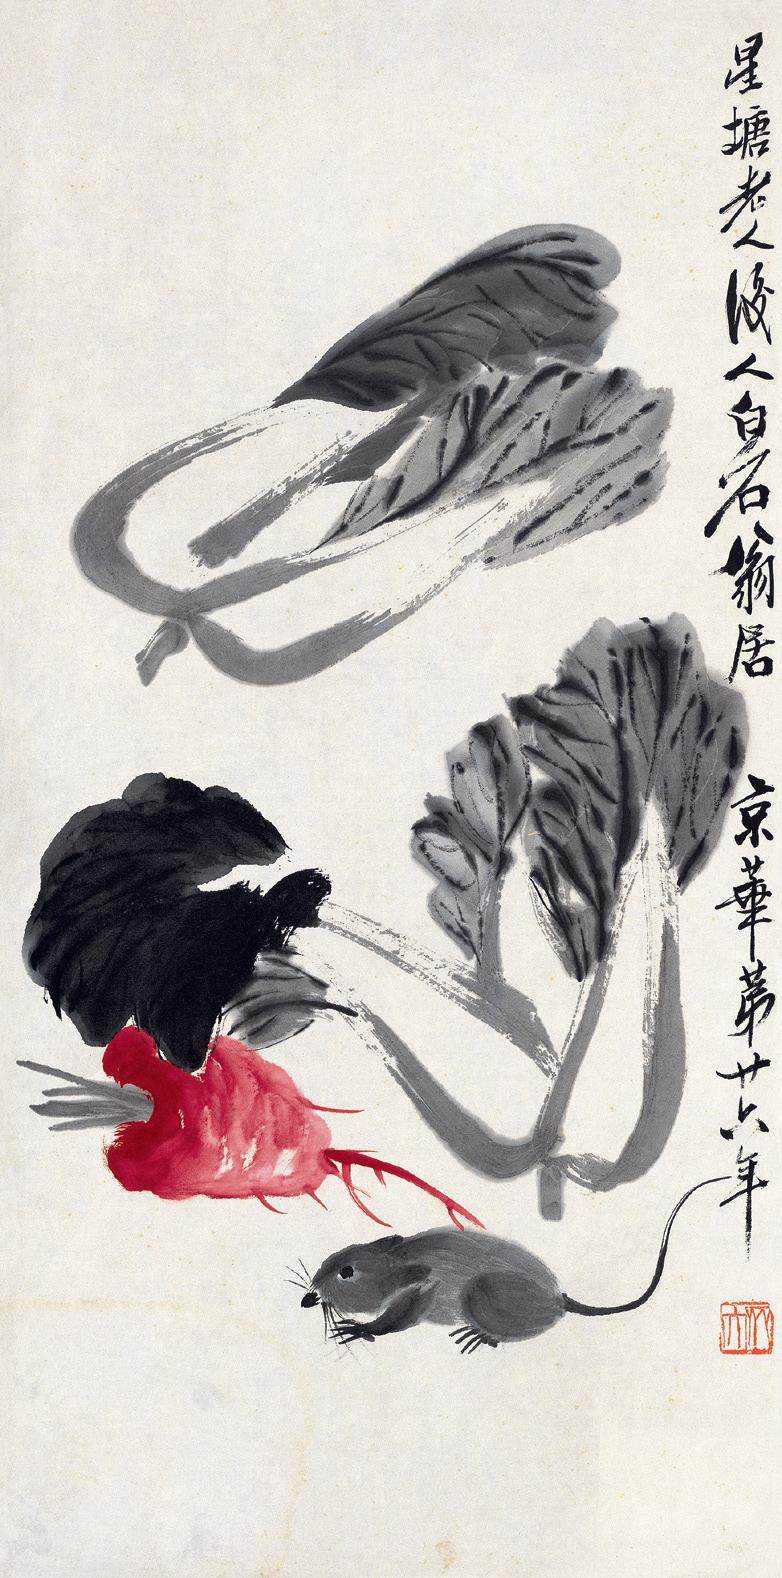 星塘老人後人白石翁居
京華第廿六年
木人